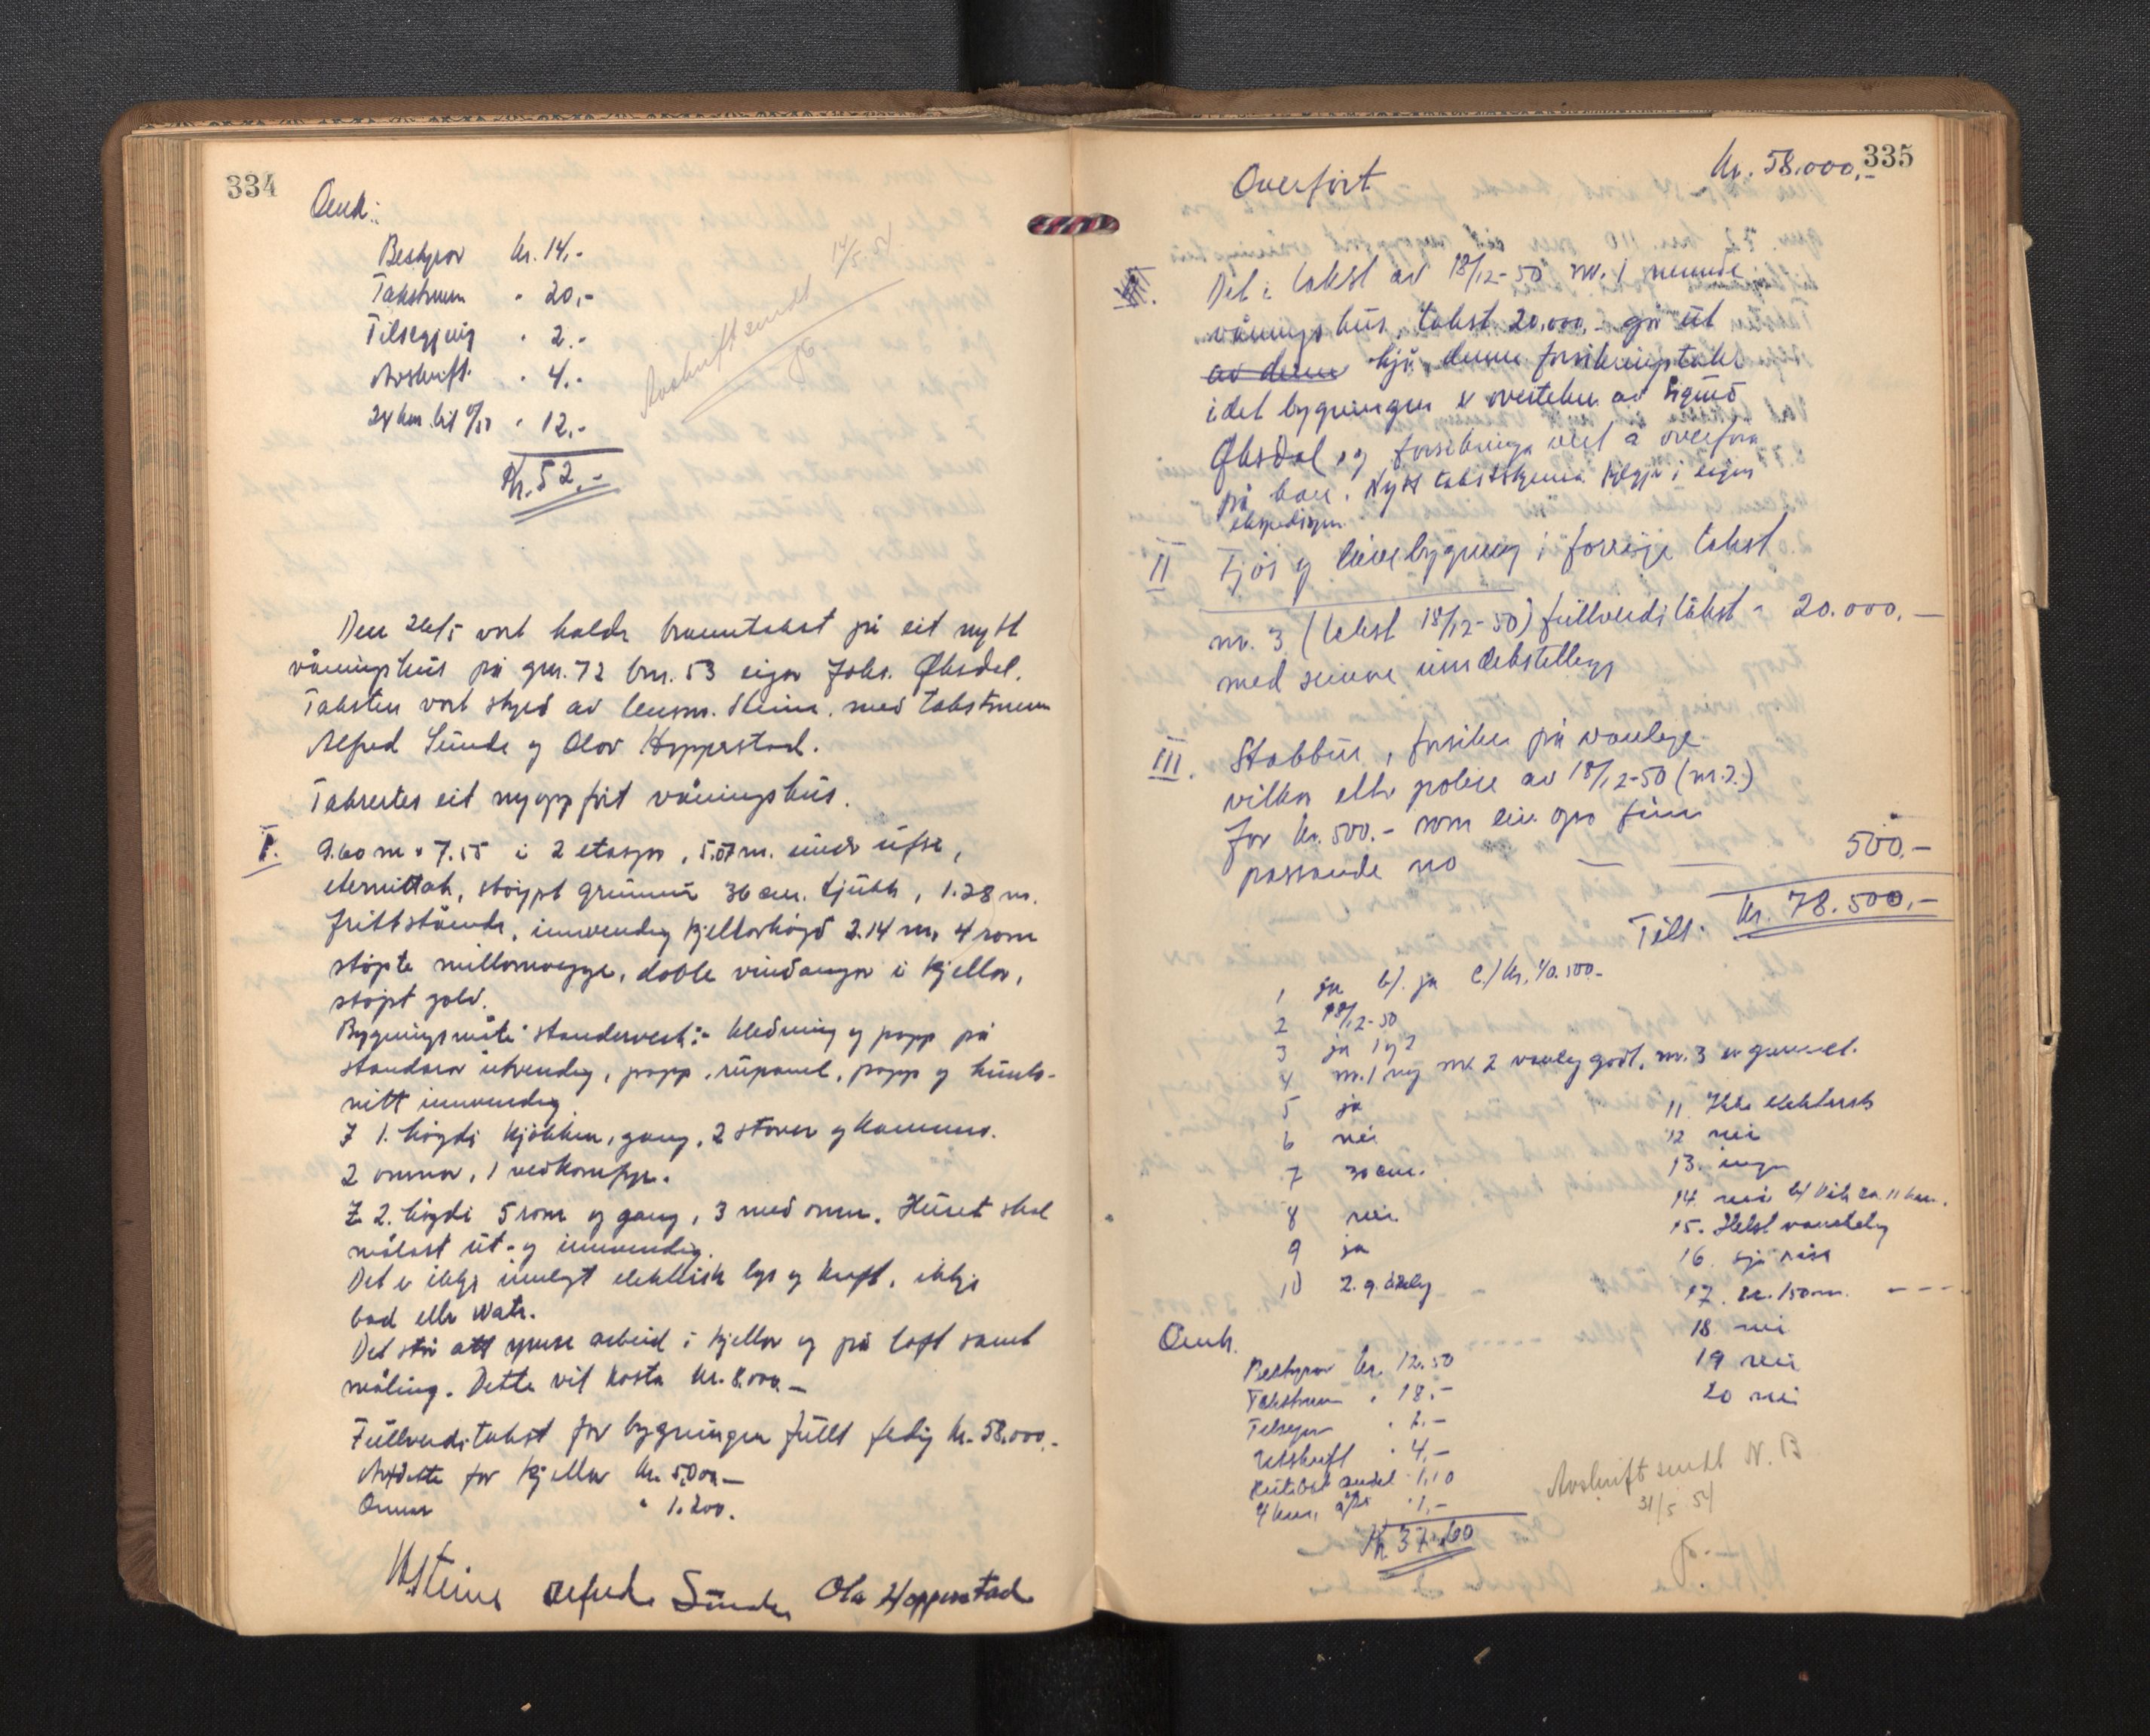 334
Omk:
Bestyrar kr. 14,-
Takstmenn " 20,-
Tilsegjing " 2.-
Avskrift " 4.-
24 km. bil " 12.-
Kr. 52.-
Avskrift sendt 14/5-54
Den 26/5 vart halde branntakst på eit nytt
våningshus på gnr. 72 bnr. 53 eigar Johs. Øksdal.
Taksten vart styrd av lensm. Steine, med takstmenn
Alfred Sunde og Olav Hopperstad.
Taksertes eit nyoppført våningshus.
I. 9.60 m x 7.55 i 2 etasjer, 5.07 m. under ufse,
eternittak, støypt grunnmur 36 cm. tjukk, 1.28 m.
frittståande, innvendig kjellarhøgd 2.14 m, 4 rom
støpte millomvegge, doble vindaugor i kjellar,
støpt golv.
Bygningsmåte: standerverk:- kledning og papp på
standarar utvendig, papp, rupanel, papp og
innvendig.
I 1. høgdi kjøkken, gang, 2 stover og kammers.
2 omnar, 1 vedkomfyr.
I 2. høgdi 5 rom og gang, 3 med omn. Huset skal
målast ut- og innvendig.
Det er ikkje innlagt elektrisk lys og kraft, ikkje
bad eller water.
Det står att ymse arbeid i kjellar og på loft samt
måling. Dette vil kosta kr. 8.000.-
Fullverditakst for bygningen fullt ferdig kr. 58.000.-
Av dette for kjellar kr. 5.000.-
Omnar " 1.200.
Steine Alfred Sunde Ola Hopperstad
335
Overført kr. 58.000,-
Det i takst av 18/12-50 nr. 1 nemnde
våningshus, takst 20.000,- går ut
av denne hjå denne forsikringstakar
idet bygningen er overteken av Sigurd
Øksdal og forsikringa vert å overføra
på han. Nytt takstskjema fylgjer i eigen
ekspedisjon.
II Fjøs og løebygning i forrige takst
nr. 3 (takst 18/12-50) fullverditakst " 20.000,-
med seinare
III. Stabbur, forsikra på vanlege
vilkår etter polise av 18/12-50 (nr. 2.)
for kr. 500.- som ein og so finn
passande no 500.-
Till. kr. 78.500,-
1 ja b). ja c.) kr. 40.500-
2 18/12-50
3 ja 1 og 2
4 nr. 1 ny nr. 2 vanleg godt, nr. 3 er gamalt.
5 ja
6 nei
7 30 cm.
8 nei
9 ja
10 2. g. årleg
11. Ikke elektrisk
12 nei
13. ingen
14. nei b) Vik ca 11 km.
15. Helst vanskeleg
16. sjå
17. ca. 150 m.
18 nei
19 nei
20 nei
Omk.
Bestyrar kr. 12.50
Takstmenn " 18.-
Tilsegjing
Utskrift " 4,-
andel 1,10
4 km, " 1,-
Kr. 37.60
Avskrift sendt N. B
31/5 54